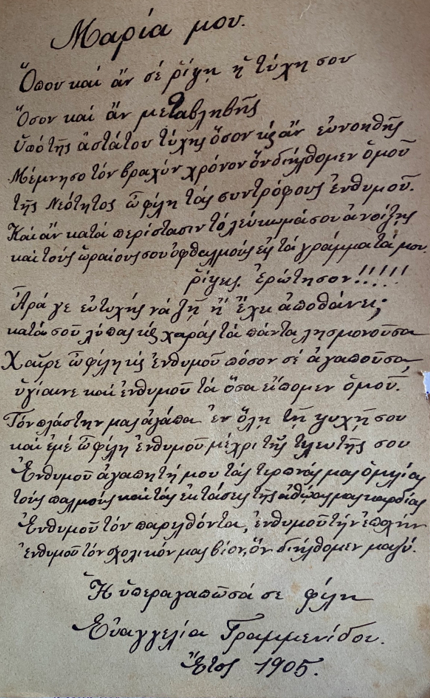 Μαρία μου.
Ὅπου καί ἄν σέ ῥίψῃ ἡ τύχη σου
Ὅσον καί ἄν μεταβληθῇς
Ὑπό τῆς ἀστάτου τύχης ὅσον κι ἄν εὐνοηθῇς
Μέμνησο τόν βραχύν χρόνον ὅν διήλθομεν ὁμοῦ
τῆς Νεότητος ὦ φίλη τάς συντρόφους ἐνθυμοῦ.
Καί ἄν κατά περίστασιν τό λεύκωμά σου ἀνοίξῃς
καί τούς ὡραίους σου ὀφθαλμούς εἰς τά γράμματά μου
ῥίψῃς. Ἐρώτησον!!!!!
Ἆρά γε εὐτυχής νά ζῇ ἤ ἔχει ἀποθάνει;
κατά σοῦ λύπας κ χαράς τά πάντα λησμονοῦσα
Χαῖρε ὦ φίλη κ ἐνθυμοῦ πόσον σέ ἀγαποῦσα
ὑγίαινε καί ἐνθυμοῦ τά ὅσα εἴπομεν ὁμοῦ.
Τόν πλάστην μας ἀγάπα ἐν ὅλῃ τῇ ψυχῇ σου
καί ἐμέ ὦ φίλη ἐνθυμοῦ μέχρι τῆς τελευτῆς σου
Ἐνθυμοῦ ἀγαπητή μου τάς τερπνάς μας ὁμιλίας
τούς παλμούς καί τάς ἐκτάσεις τῆς ἀθώας μας καρδίας
Ἐνθυμοῦ τόν παρελθόντα, ἐνθυμοῦ τήν ἐποχήν
ἐνθυμοῦ τόν σχολικόν μας βίον, ὅν διήλθομεν μαζύ.
Ἡ ὑπεραγαπῶσά σε φίλη
Εὐαγγελία Γραμμενίδου.
Ἔτος 1905.